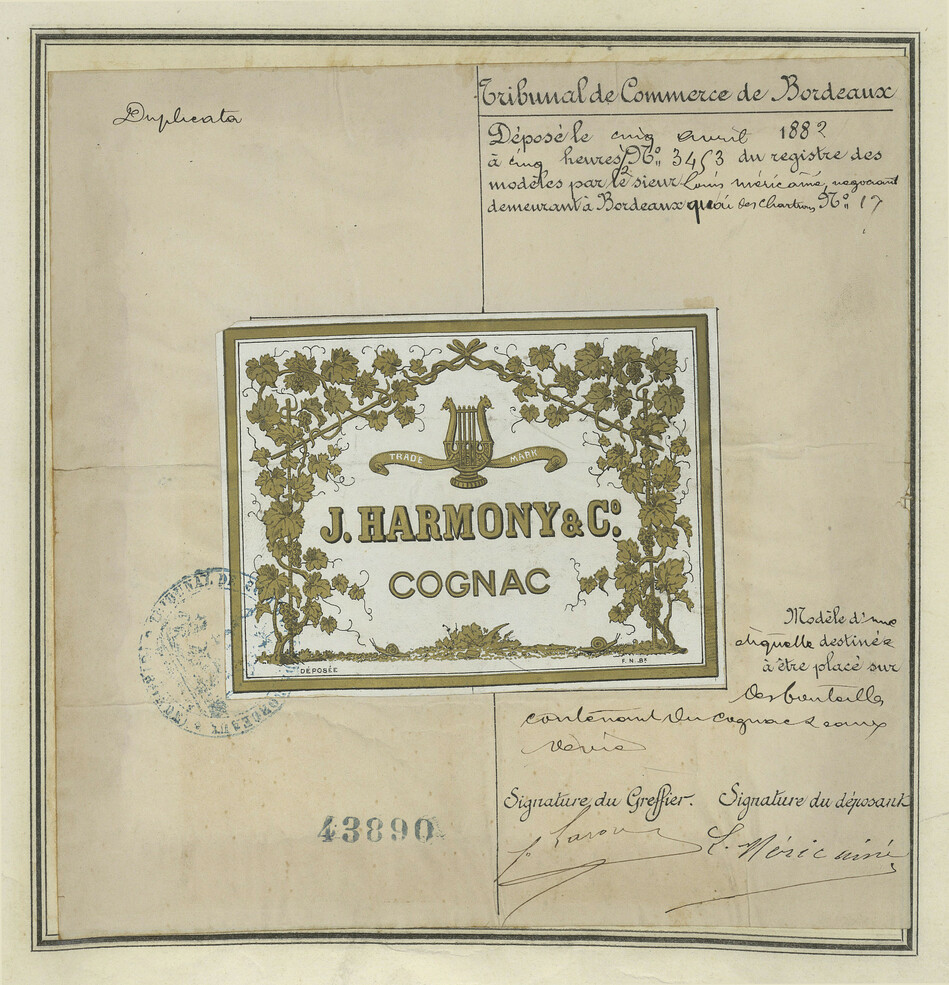 Duplicata
Tribunal de Commerce de Bordeaux
Déposé le cinq avril 1882
à cinq heures N° 3453 du registre des
modèles par le sieur Louis Méric ainé, négociant
demeurant à Bordeaux quai des Chartrons N° 17
TRADE MARK
J. HARMONY & Cº
COGNAC
DÉPOSÉE
F. N. Bx
Modèle d'une
étiquette destinée
à être placé sur
des bouteilles
contenant du cognac & eaux
de vie
Signature du Greffier. Signature du déposant
L. Méric ainé
43890